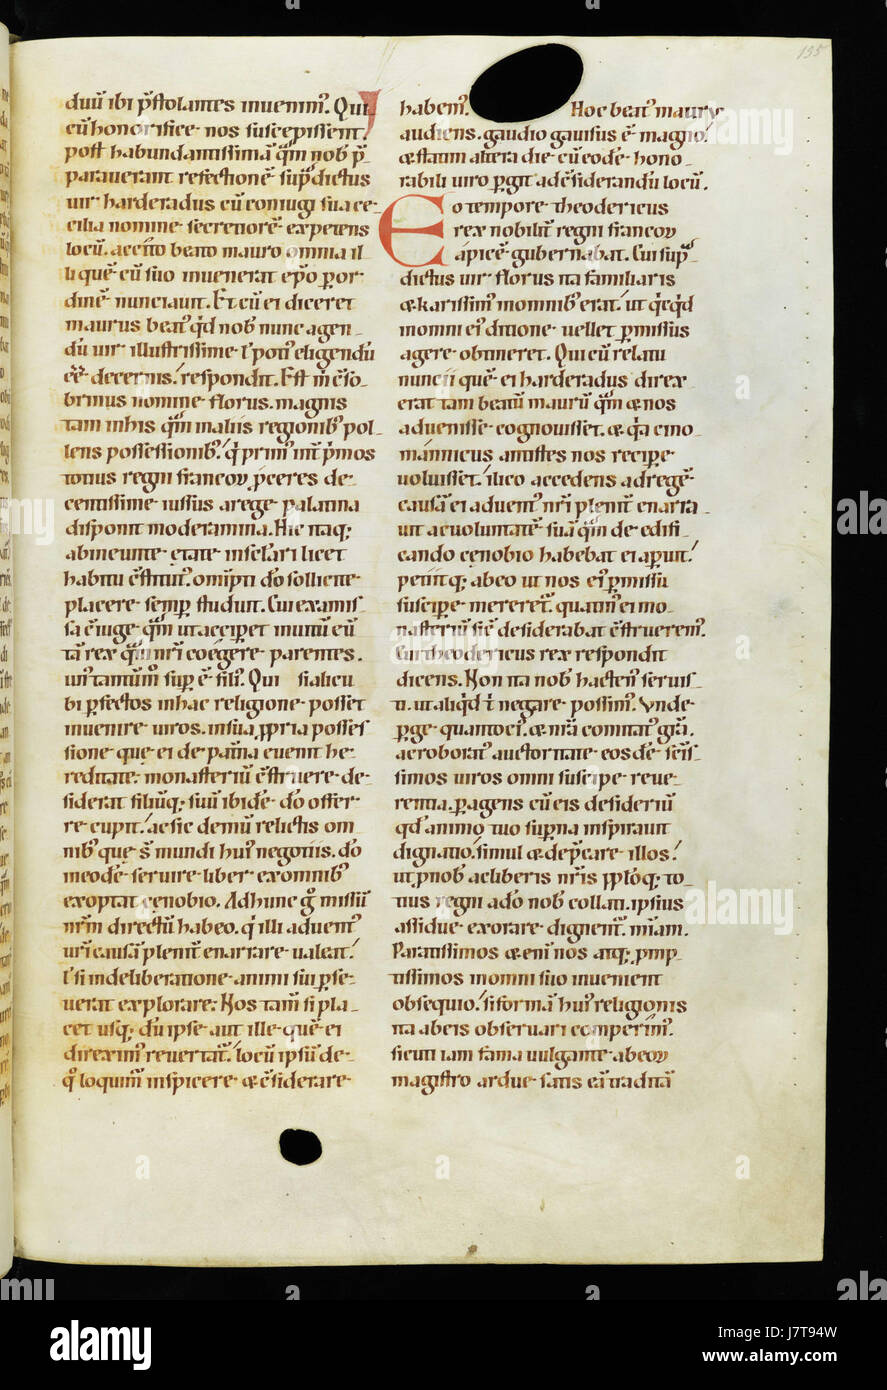 135
duū ibi p̄stolantes inuenim᷒. Qui
cū honorifice nos suscepissent.
post habundantissimā q̄m nob̄ p̄
parauerant refectionē sup̄dictus
uir harderadus cū coniugi sua ce
cilia nomine secretiorē expetens
locū. accito beato mauro omnia il
li quē cū suo inuenerat ep̄o p̲or
dinē nunciauit. Et cū ei diceret
maurus beat᷒ qd̄ nob̄ nunc agen
dū uir illustrissime t̄ poti᷒ eligendū
eē decernis. respondit. Est m̄ c̄so
brinus nomine florus. magnis
tam in his q̄m in aliis regionib᷒ pol
lens possessionib᷒. q̄ prim᷒ int̄ p̄mos
totius regni francoꝝ p̲ceres de
centissime iussus a rege palatina
disponit moderamina. Hic itaq;
ab ineunte etate in sc̄lari licet
habitu c̄stitut᷒. om̄ipti dō sollicite
placere semp̲ studuit. Cui ex amis
sa c̄iuge q̄m ut accip̲et inuitū eū
tā rex q̄m nr̄i coegere parentes.
un᷒ tantūm᷒ sup̲ ē fili᷒. Qui si alicu
bi p̲fectos in hac religione posset
inuenire uiros. in sua p̲pria posses
sione que ei de pat̄na euenit he
reditate. monasteriū c̄struere de
siderat filiūq; suū ibidē dō offer
re cupit. ac sic demū relictis om
nib᷒ que s̄ mundi hui᷒ negotiis. dō
in eodē seruire liber ex omnib᷒
exoptat cenobio. Adhunc g̊ missū
nr̄m directū habeo. q̄ illi aduent᷒
ur̄i causā plenit̄ enarrare ualeat.
t̄ si in deliberatione animi sui p̲se
uerat explorare. Nos tam̄ si pla
cet usq; dū ipse aut ille quē ei
direxim᷒ reuertat᷒. locū ipsū de
q̊ loquim᷒ inspicere & c̄siderare
habem᷒. Hoc beat᷒ maur᷒
audiens. gaudio gauisus ē magno.
& statim altera die cū eodē hono
rabili uiro p̲git ad c̄siderandū locū.
Eo tempore theodericus
rex nobilit̄ regni francoꝝ
apicē gubernabat. Cui sup̄
dictus uir florus ita familiaris
& karissim᷒ in omnib᷒ erat. ut qcqd̄
in omni ei᷒ ditione uellet p̲missus
agere obtineret. Qui cū relatu
nuncii quē ei harderadus direx
erat tam beatū maurū q̄m & nos
aduenisse cognouisset. & q̄a ceno
mannicus antistes nos recipe
uoluisset. ilico accedens ad regē
causā ei aduent᷒ nr̄i plenit̄ enarra
uit ac uoluntatē suā q̄m de edifi
cando cenobio habebat ei ap̲uit.
petiitq; ab eo ut nos ei᷒ p̲missu
suscipe mereret᷒. quatin᷒ ei mo
nasteriū sic̄ desiderabat c̄struerem᷒.
Cui theodericus rex respondit
dicens. Non ita nob̄ hacten᷒ seruis
ti. ut aliqd̄ t̄ negare possim᷒. Vnde
p̲ge quantoci᷒. & nr̄a comitat᷒ gr̄a.
ac roborat᷒ auctoritate eosdē sc̄is
simos uiros omni suscipe reue
rentia. p̲agens cū eis desideriū
qd̄ animo tuo sup̲na inspirauit
dignatio. simul & dep̄care illos.
ut p̲ nob̄ ac liberis nr̄is p̲ploq; to
tius regni a dō nob̄ collati. ipsius
assidue exorare dignent᷒ mīam.
Paratissimos &eni nos atq; p̲mp
tissimos in omni suo inuenient
obsequio. si formā hui᷒ religionis
ita ab eis obseruari comperim᷒.
sicuti iam fama uulgante ab eoꝝ
magistro ardue satis eī traditā